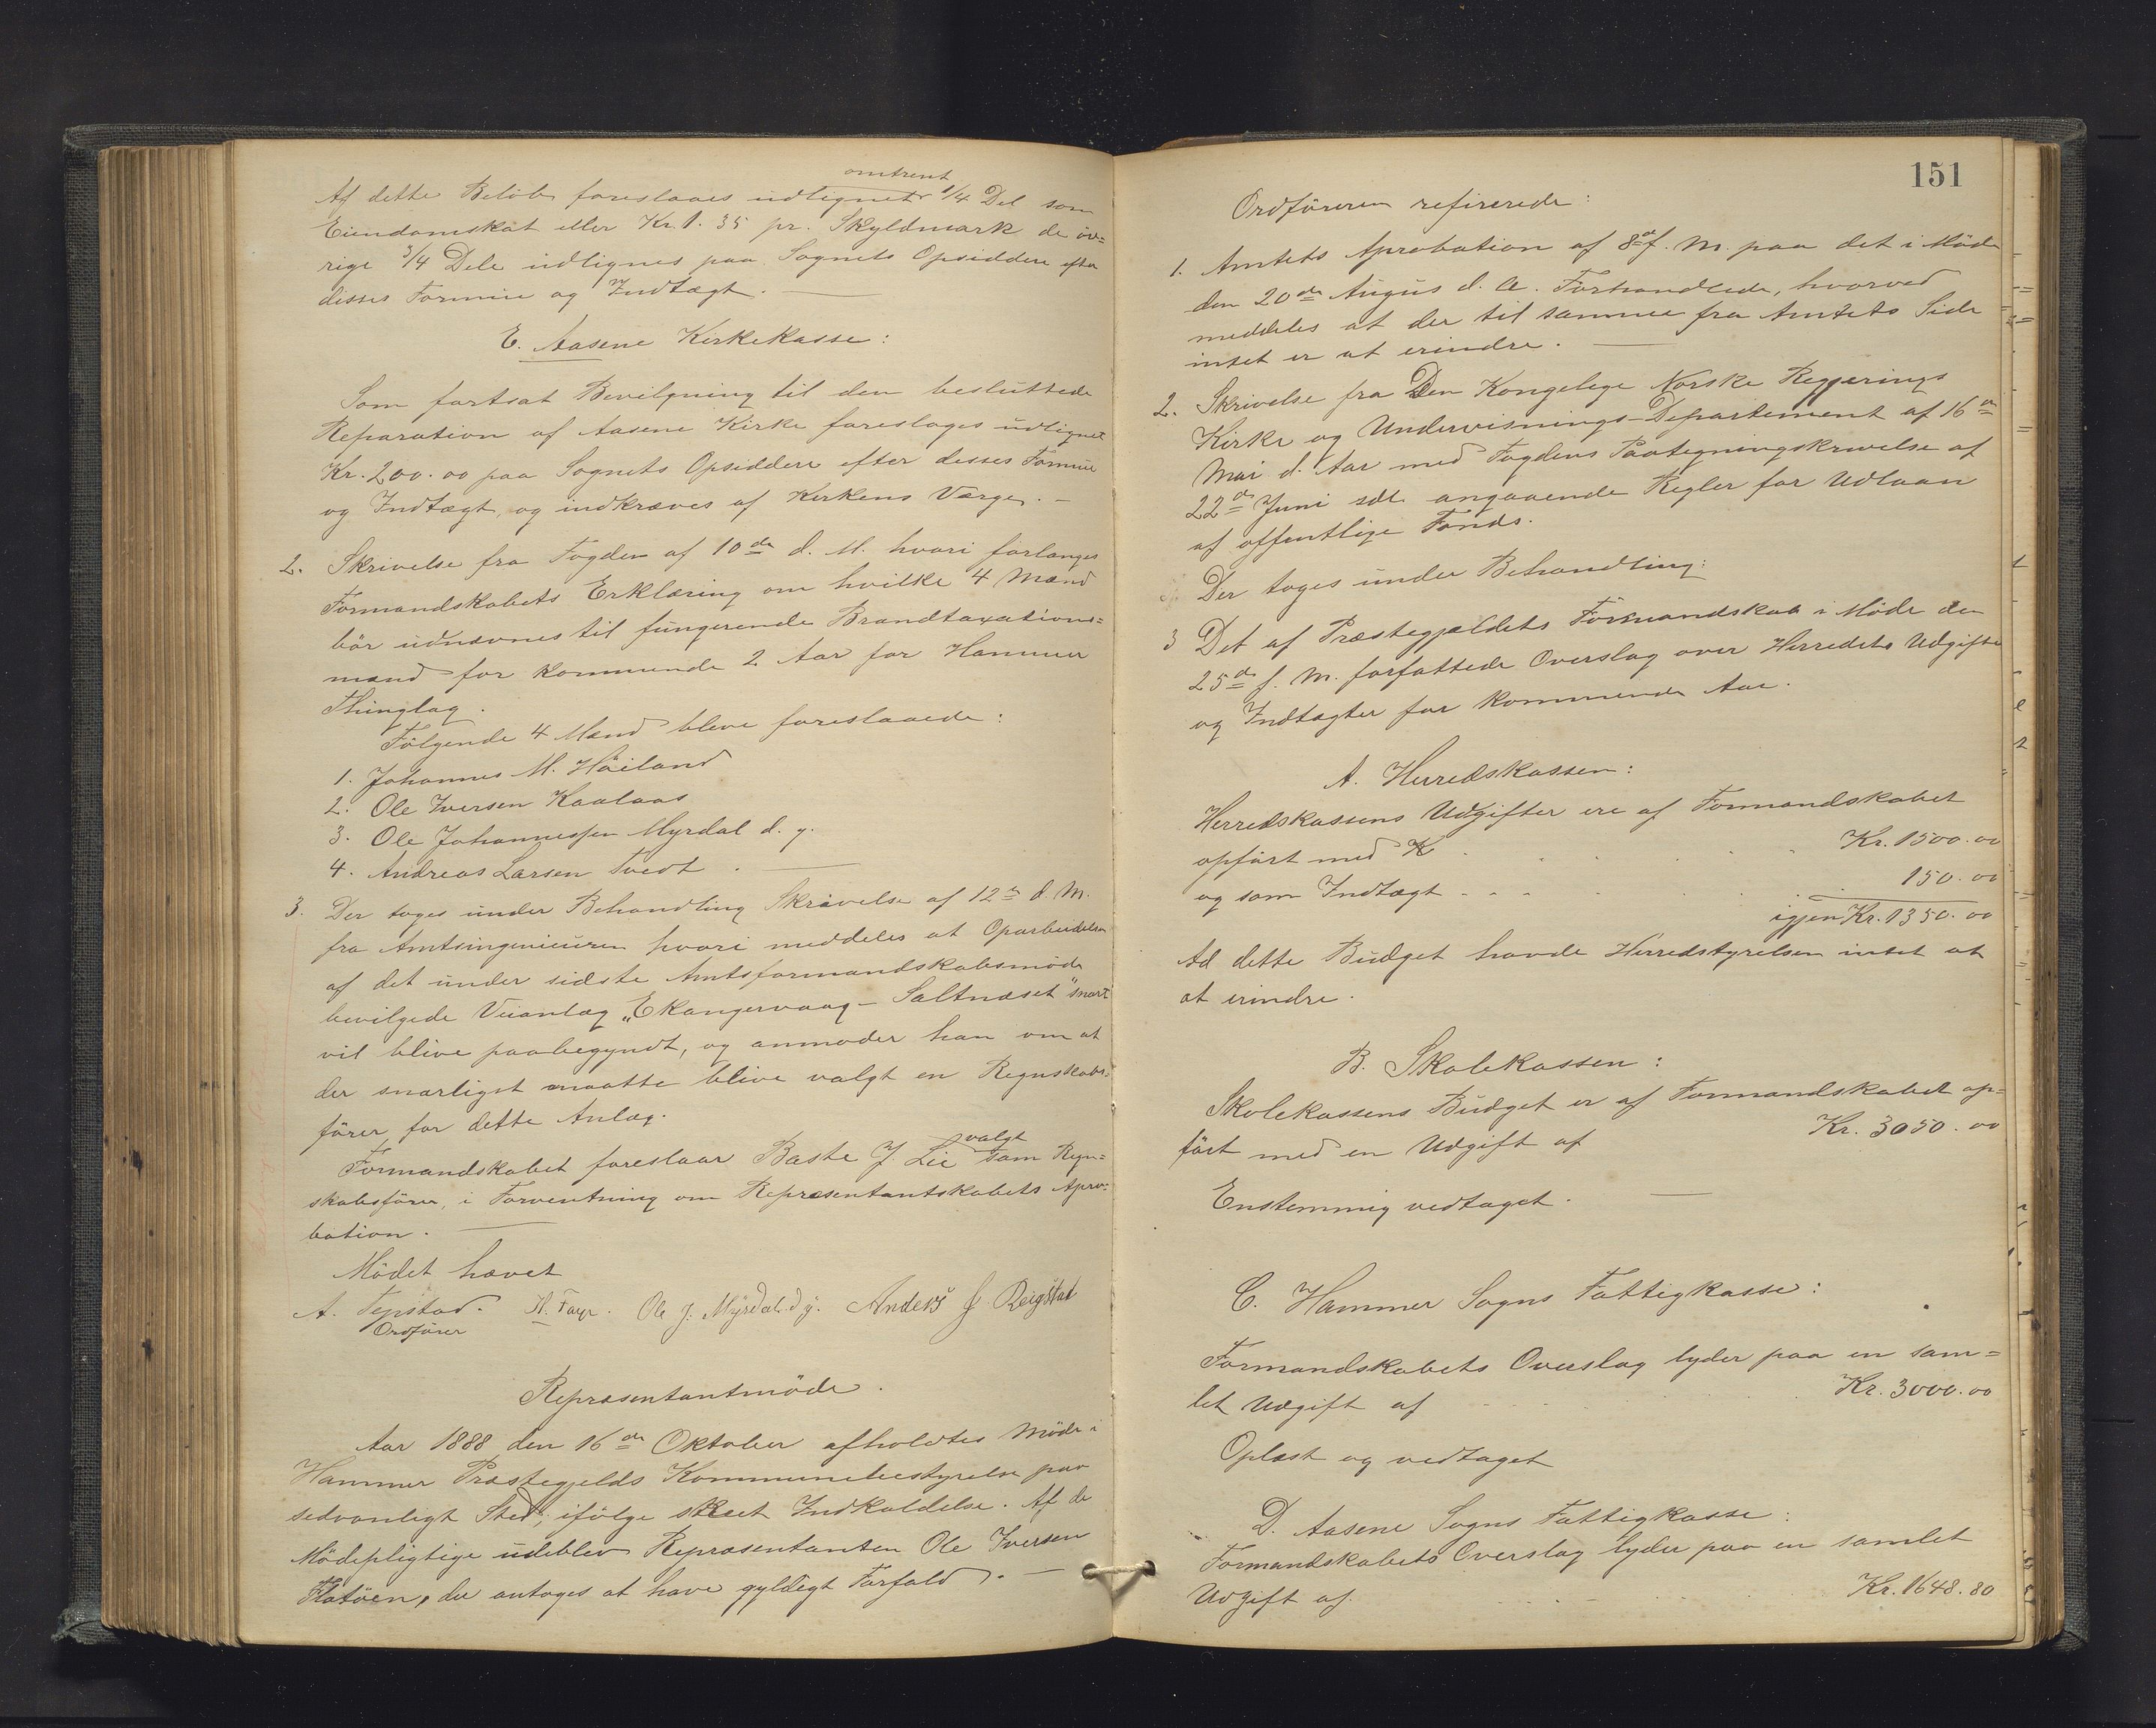 omtrent
Af dette Beløb foreslaaes udlignet 1/4 Del som
Eiendomskat eller Kr. 1. 35 pr. Skyldmark de öv=
rige 3/4 Dele udlignes paa Sognets Opsiddere efter
disses Formue og Indtægt.
E. Aasene Kirkekasse:
Som fortsat Bevilgning til den besluttede
Reparation af Aasene Kirke foreslages udlignet
Kr. 200.00 paa Sognets Opsiddere efter desses Formue
og Indtægt, og indkræves af Kirkens Værge. -
2. Skrivelse fra Fogden af 10de d. M. hvori forlanges
Formandskabets Erklæring om hvilke 4 Mænd
bör udnævnes til fungerende Brandtaxations=
mænd for kommende 2 Aar for Hammer
Thinglag.
Fölgende 4 Mænd bleve foreslaaede:
1. Johannes M. Häiland
2. Ole Iversen Kaalaas
3. Ole Johannessen Myrdal d. y.
4. Andreas Larsen Tvedt.
3. Der toges under Behandling Skrivelse af 12te d. M.
fra Amtsingeniøren hvori meddeles at Oparbeidelsen
af det under sidste Amtsformandskabsmöde
bevilgede Veianlæg "Ekangervaag - Saltnæset" snart
vil blive paabegyndt, og anmoder han om at
der snarligst maatte blive valgt en Regnskabs=
förer for dette Anlæg.
valgt
Formandskabet foreslaar Baste J Lie som Regn=
skabsförer, i Forventning om Repræsentantskabets Apro=
bation.
Mödet hævet
A. Tepstad. H. Faye. Ole J. Myrdal. d y. Anders J. Reigstad
Ordförer
Repræsentantmöde.
Aar 1888 den 16de Oktober afholdtes Möde i
Hammer Præstegjelds Kommunebestyrelse paa
sedvanligt Sted, ifölge skeet Indkaldelse. Af de
Mödepligtige udeblev Repræsentanten Ole Iversen
Flatöen, der antoges at have gyldigt Forfald. -
151
Ordföreren refirerede:
1. Amtets Aprobation af 8de f. M. paa det i Möde
den 20de Augus d. A. Forhandlede, hvorved
meddeles at der til samme fra Amtets Side
intet er at erindre.
2. Skrivelse fra Den Kongelige Norske Regjerings
Kirke og Undervisnings-Departement af 16de
Mai d. Aar med Fogdens Paategningskrivelse af
22de Juni sdl. angaaende Regler for Udlaan
af offentlige Fonds.
Der toges under Behandling:
3 Det af Præstegjældets Formandskab i Möde den
25de f. M. forfattede Overslag over Herredets Udgifter
og Indtægter for kommende Aar.
A. Herredskassen:
Herredskassens Udgifter ere af Formandskabet
opfört med K Kr. 1500.00
og som Indtægt 150.00
igjen Kr. 1350.00
Ad dette Budget havde Herredstyrelsen intet at
at erindre.
B. Skolekassen:
Skolekassens Budget er af Formandskabet op=
fört med en Udgift af Kr. 3050.00
Enstemmig vedtaget.
C. Hammer Sogns Fattigkasse:
Formandskabets Overslag lyder paa en sam=
let Udgift af Kr. 3000.00
Oplæst og vedtaget
D. Aasene Sogns Fattigkasse:
Formandskabets Overslag lyder paa en samlet
Udgift af Kr. 1648.80